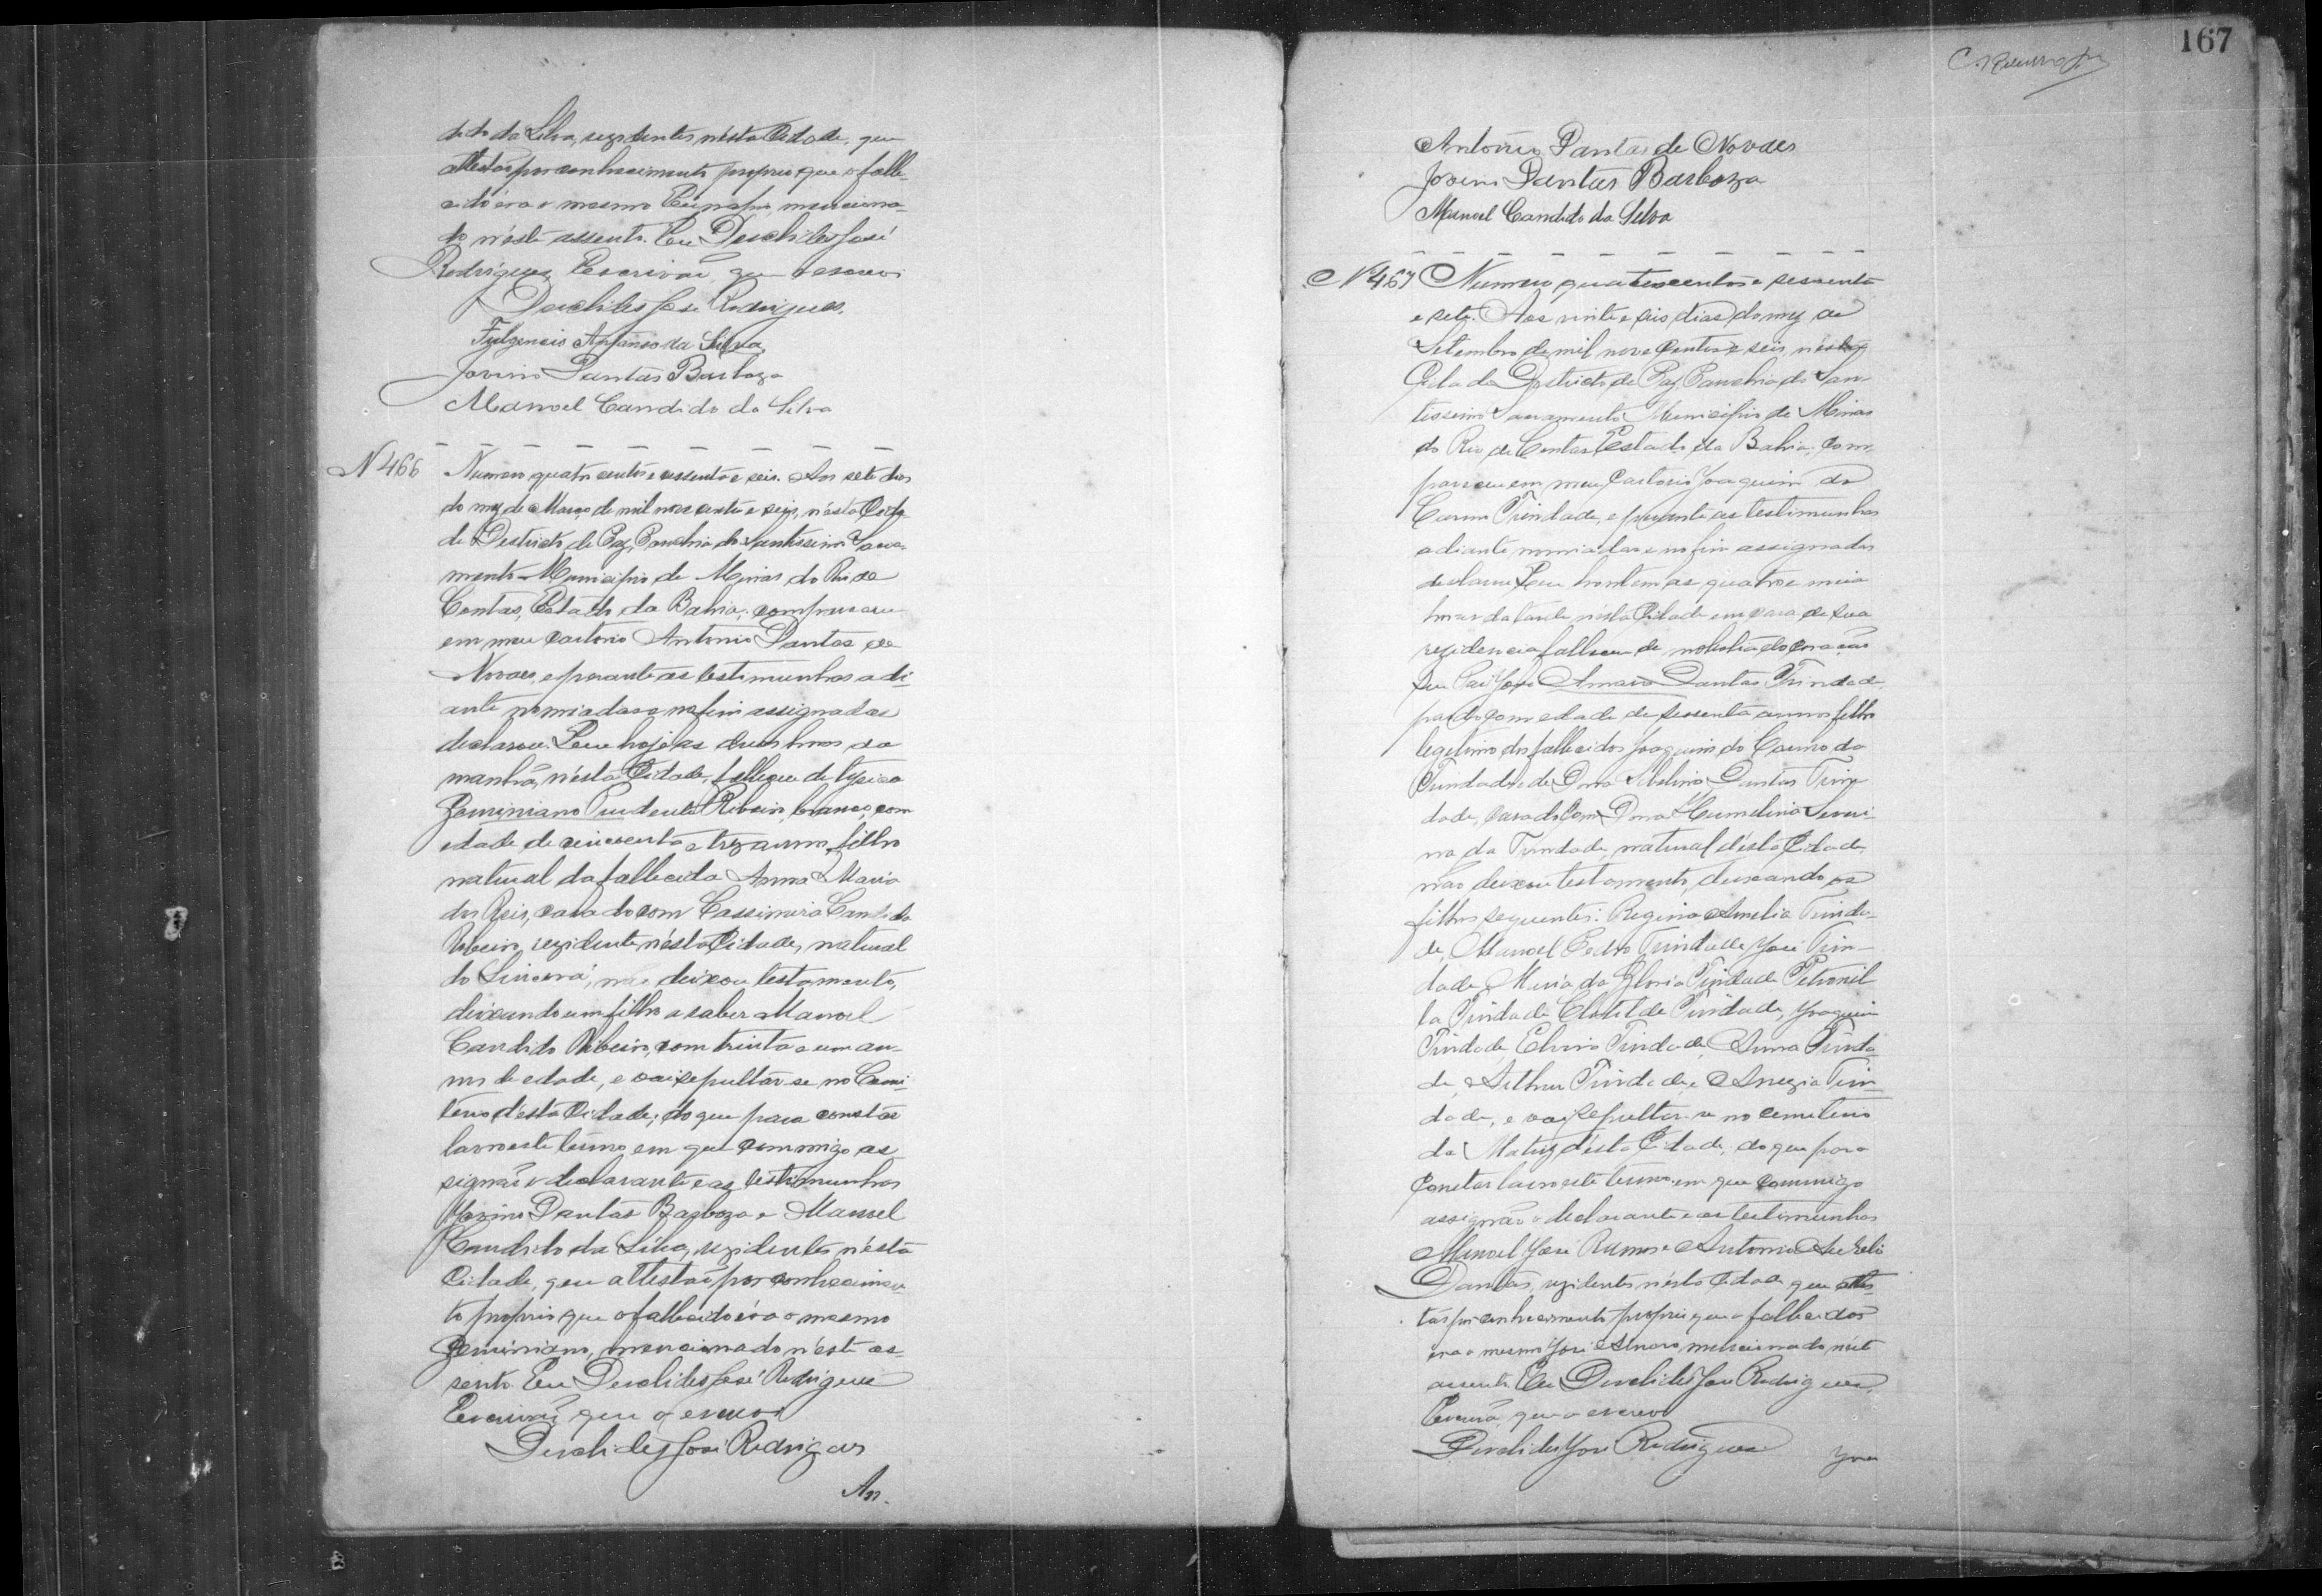 dido da Silva, rezidentes nésta Cidade, que
attestão por conhecimento proprio que o falle-
cido éra o mesmo menciona-
do n'éste assento. Eu Deoclides José
Rodrigues, Escrivão, que o escrevi
Deoclides José Rodrigues.
Fulgencio Affonso da Silva
Jovino Dantas Barboza
Manoel Candido da Silva
N 466 Numero quatro centos e sessenta e seis. Aos sete dias
do mez de Março de mil nove centos e seis, n'ésta Cida-
de Districto de Paz, Parochia do Santissimo Sacra-
mento Municipio de Minas do Rio de
Contas, Estado da Bahia, compareceu
em meu cartorio Antonio Dantas de
Novaes, e perante as testimunhas adi-
ante nomiadas e no fim assignadas
declarou: Que hoje as duas horas da
manhã, n'ésta Cidade, falleceu de tysica
Geminiano Prudente Ribeiro, branco, com
edade de cincoenta e trez annos, filho
natural da fallecida Anna Maria
dos Reis, cazado com Cassimira Candida
Ribeiro, rezidente n'ésta Cidade, natural
do Sincorá, não deixou testamento,
deixando um filho a saber Manoel
Candido Ribeiro, com trinta e um an-
nos de edade, e vai sepultar-se no Cemi-
terio d'ésta Cidade; do que para constar
lavro este termo em que commigo as-
signão o declarante e as testimunhas
Jovino Dantas Barboza e Manoel
Candido da Silva, rezidentes n'ésta
Cidade, que attestão por conhecimen-
to proprio que o fallecido éra o mesmo
Geminiano, mencionado n'éste as-
sento. Eu Deoclides José Rodrigues
Escrivão, que o escrevi
Deoclides José Rodrigues
An.
167
Antonio Dantas de Novaes
Jovino Dantas Barboza
Manoel Candido da Silva
N 467 Numero quatrocentos e sessenta
e sete. Aos vinte e seis dias do mez de
Setembro de mil nove Centos e seis, nésta
Cidade Districto de Paz Parochia do San-
tissimo Sacramento Municipio de Minas
do Rio de Contas Estado da Bahia, com-
pareceu em meu Cartorio Joaquim do
Carmo Trindade, e perante as testimunhas
adiante nomiadas e no fim assignadas
declarou: Que hontem as quatro e meia
horas da tarde, n'ésta Cidade em caza de sua
rezidencia falleceu de molestia do coração
seu Pai José Amaro Dantas Trindade,
pardo, com edade de sessenta annos, filho
legitimo dos fallecidos Joaquim do Carmo da
Trindade e de Dona Dantas Trin-
dade, cazado com Dona Severi-
na da Trindade, natural d'ésta Cidade,
não deixou testamento, deixando os
filhos seguintes: Regina Amelia Trinda-
de, Manoel Pedro Trindade, José Trin-
dade, Maria da Gloria Trindade Petronil-
la Trindade Clotilde Trindade, Joaquim
Trindade, Elvira Trindade, Anna Trinda-
de, Arthur Trindade e Anezia Trin-
dade, e vai sepultar-se no cemiterio
da Matriz d'ésta Cidade, do que para
constar lavro este termo em que commigo
assignão o declarante e as testimunhas
Manoel José Ramos e Antonio Aurelio
Dantas, rezidentes n'ésta Cidade que attes-
tão por conhecimento proprio que o fallecido
era o mesmo José Amaro mencionado n'éste
assento. Eu Deoclides José Rodrigues,
Escrivão, que o escrevi
Deoclides José Rodrigues